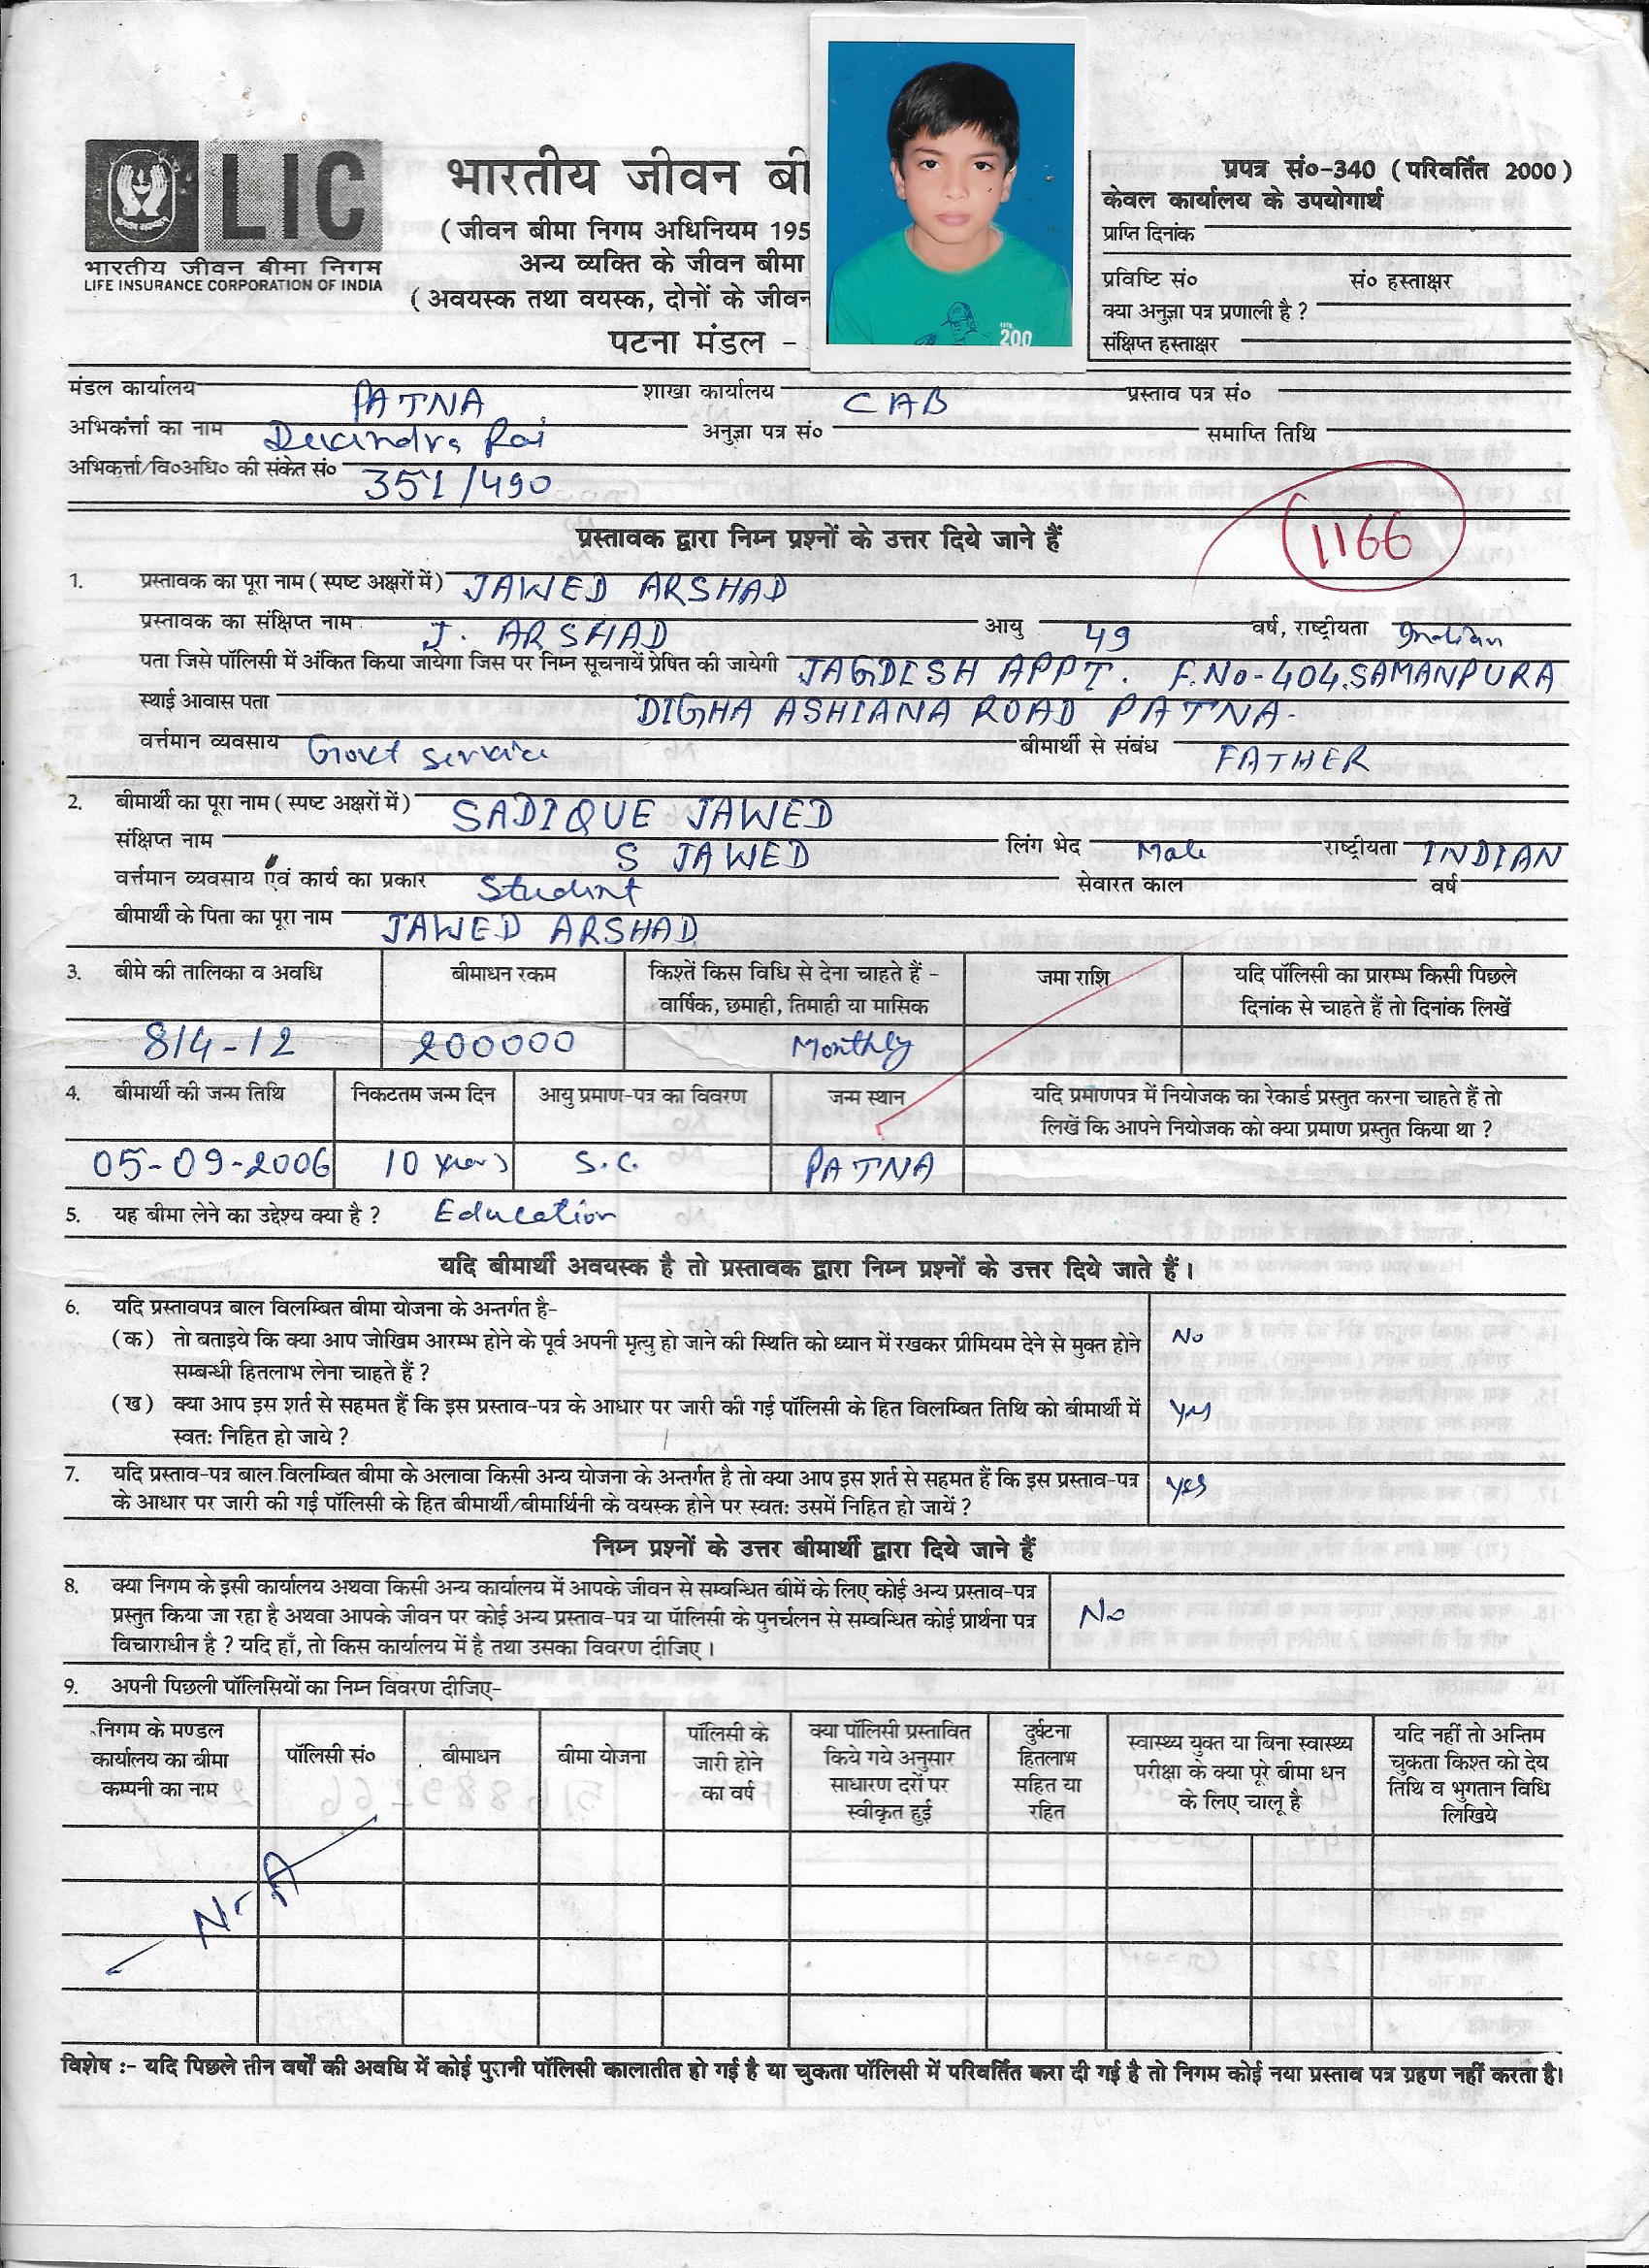 LIC
भारतीय जीवन बीमा निगम
LIFE INSURANCE CORPORATION OF INDIA
भारतीय जीवन बी
( जीवन बीमा निगम अधिनियम 195
अन्य व्यक्ति के जीवन बीमा
( अवयस्क तथा वयस्क, दोनों के जीवन
पटना मंडल -
ESTD. 200
प्रपत्र सं०-340 ( परिवर्तित 2000 )
केवल कार्यालय के उपयोगार्थ
प्राप्ति दिनांक
प्रविष्टि सं० सं० हस्ताक्षर
क्या अनुज्ञा पत्र प्रणाली है ?
संक्षिप्त हस्ताक्षर
मंडल कार्यालय PATNA शाखा कार्यालय CAB प्रस्ताव पत्र सं०
अभिकर्त्ता का नाम Devendra Rai अनुज्ञा पत्र सं० समाप्ति तिथि
अभिकर्त्ता/वि०अधि० की संकेत सं० 351/490
1166
प्रस्तावक द्वारा निम्न प्रश्नों के उत्तर दिये जाने हैं
1. प्रस्तावक का पूरा नाम ( स्पष्ट अक्षरों में ) JAWED ARSHAD
प्रस्तावक का संक्षिप्त नाम J. ARSHAD आयु 49 वर्ष, राष्ट्रीयता Indian
पता जिसे पॉलिसी में अंकित किया जायेगा जिस पर निम्न सूचनायें प्रेषित की जायेगी JAGDISH APPT. F.No-404.SAMANPURA
स्थाई आवास पता DIGHA ASHIANA ROAD PATNA-
वर्त्तमान व्यवसाय Govt Service बीमार्थी से संबंध FATHER
2. बीमार्थी का पूरा नाम ( स्पष्ट अक्षरों में ) SADIQUE JAWED
संक्षिप्त नाम S JAWED लिंग भेद Male राष्ट्रीयता INDIAN
वर्त्तमान व्यवसाय एवं कार्य का प्रकार Student सेवारत काल वर्ष
बीमार्थी के पिता का पूरा नाम JAWED ARSHAD
3. बीमे की तालिका व अवधि बीमाधन रकम किश्तें किस विधि से देना चाहते हैं - जमा राशि यदि पॉलिसी का प्रारम्भ किसी पिछले
वार्षिक, छमाही, तिमाही या मासिक दिनांक से चाहते हैं तो दिनांक लिखें
814-12 200000 Monthly
4. बीमार्थी की जन्म तिथि निकटतम जन्म दिन आयु प्रमाण-पत्र का विवरण जन्म स्थान यदि प्रमाणपत्र में नियोजक का रेकार्ड प्रस्तुत करना चाहते हैं तो
लिखें कि आपने नियोजक को क्या प्रमाण प्रस्तुत किया था ?
05-09-2006 10 years S.C. PATNA
5. यह बीमा लेने का उद्देश्य क्या है ? Education
यदि बीमार्थी अवयस्क है तो प्रस्तावक द्वारा निम्न प्रश्नों के उत्तर दिये जाते हैं।
6. यदि प्रस्तावपत्र बाल विलम्बित बीमा योजना के अन्तर्गत है-
(क) तो बताइये कि क्या आप जोखिम आरम्भ होने के पूर्व अपनी मृत्यु हो जाने की स्थिति को ध्यान में रखकर प्रीमियम देने से मुक्त होने No
सम्बन्धी हितलाभ लेना चाहते हैं ?
(ख) क्या आप इस शर्त से सहमत हैं कि इस प्रस्ताव-पत्र के आधार पर जारी की गई पॉलिसी के हित विलम्बित तिथि को बीमार्थी में yes
स्वतः निहित हो जाये ?
7. यदि प्रस्ताव-पत्र बाल विलम्बित बीमा के अलावा किसी अन्य योजना के अन्तर्गत है तो क्या आप इस शर्त से सहमत हैं कि इस प्रस्ताव-पत्र yes
के आधार पर जारी की गई पॉलिसी के हित बीमार्थी/बीमार्थिनी के वयस्क होने पर स्वतः उसमें निहित हो जायें ?
निम्न प्रश्नों के उत्तर बीमार्थी द्वारा दिये जाने हैं
8. क्या निगम के इसी कार्यालय अथवा किसी अन्य कार्यालय में आपके जीवन से सम्बन्धित बीमें के लिए कोई अन्य प्रस्ताव-पत्र
प्रस्तुत किया जा रहा है अथवा आपके जीवन पर कोई अन्य प्रस्ताव-पत्र या पॉलिसी के पुनर्चलन से सम्बन्धित कोई प्रार्थना पत्र No
विचाराधीन है ? यदि हाँ, तो किस कार्यालय में है तथा उसका विवरण दीजिए ।
9. अपनी पिछली पॉलिसियों का निम्न विवरण दीजिए-
निगम के मण्डल कार्यालय का बीमा कम्पनी का नाम
पॉलिसी सं०
बीमाधन
बीमा योजना
पॉलिसी के जारी होने का वर्ष
क्या पॉलिसी प्रस्तावित किये गये अनुसार साधारण दरों पर स्वीकृत हुई
दुर्घटना हितलाभ सहित या रहित
स्वास्थ्य युक्त या बिना स्वास्थ्य परीक्षा के क्या पूरे बीमा धन के लिए चालू है
यदि नहीं तो अन्तिम चुकता किश्त को देय तिथि व भुगतान विधि लिखिये
N-A
विशेष :- यदि पिछले तीन वर्षों की अवधि में कोई पुरानी पॉलिसी कालातीत हो गई है या चुकता पॉलिसी में परिवर्तित करा दी गई है तो निगम कोई नया प्रस्ताव पत्र ग्रहण नहीं करता है।